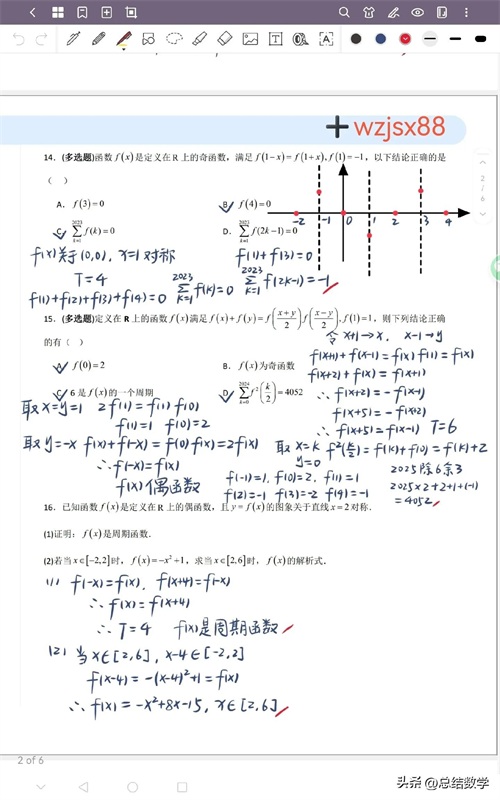 ➕wzjsx88
14. (多选题)函数 f(x) 是定义在 R 上的奇函数，满足 f(1−x)=f(1+x), f(1)=−1，以下结论正确的是
（ ）
A. f(3)=0 B. f(4)=0
C. ∑_{k=1}^{2023} f(k)=0 D. ∑_{k=1}^{2023} f(2k−1)=0
-2 -1 0 1 2 3 4
f(x)关于(0,0), x=1对称 f(1)+f(3)=0
T=4
f(1)+f(2)+f(3)+f(4)=0 ∑_{k=1}^{2023} f(k)=0 ∑_{k=1}^{2023} f(2k-1)=-1
15. (多选题)定义在 R 上的函数 f(x) 满足 f(x)+f(y)=f((x+y)/2)f((x−y)/2), f(1)=1，则下列结论正确
的有（ ）
A. f(0)=2 B. f(x) 为奇函数
C. 6 是 f(x) 的一个周期 D. ∑_{k=0}^{2024} f²(k/2)=4052
令x+1→x, x-1→y
f(x+1)+f(x-1)=f(x)f(1)=f(x)
f(x+2)+f(x)=f(x+1)
∴f(x+2)=-f(x-1)
f(x+5)=-f(x+2)
∴f(x+5)=f(x-1) T=6
取x=y=1 2f(1)=f(1)f(0)
f(1)=1 f(0)=2
取y=-x f(x)+f(-x)=f(0)f(x)=2f(x)
∴f(-x)=f(x)
f(x)偶函数
取x=k y=0 f²(k/2)=f(k)+f(0)=f(k)+2
f(-1)=1, f(0)=2, f(1)=1
f(2)=-1 f(3)=-2 f(4)=-1
2025除6余3
2025×2+2+1+(-1)
=4052
16. 已知函数 f(x) 是定义在 R 上的偶函数，且 y=f(x) 的图象关于直线 x=2 对称.
(1)证明：f(x) 是周期函数.
(2)若当 x∈[−2,2] 时，f(x)=−x²+1，求当 x∈[2,6] 时，f(x) 的解析式.
(1) f(-x)=f(x), f(x+4)=f(-x)
∴f(x)=f(x+4)
∴T=4 f(x)是周期函数
(2) 当x∈[2,6], x-4∈[-2,2]
f(x-4)=-(x-4)²+1=f(x)
∴f(x)=-x²+8x-15, x∈[2,6]
2
/
6
2 of 6
头条 @总结数学